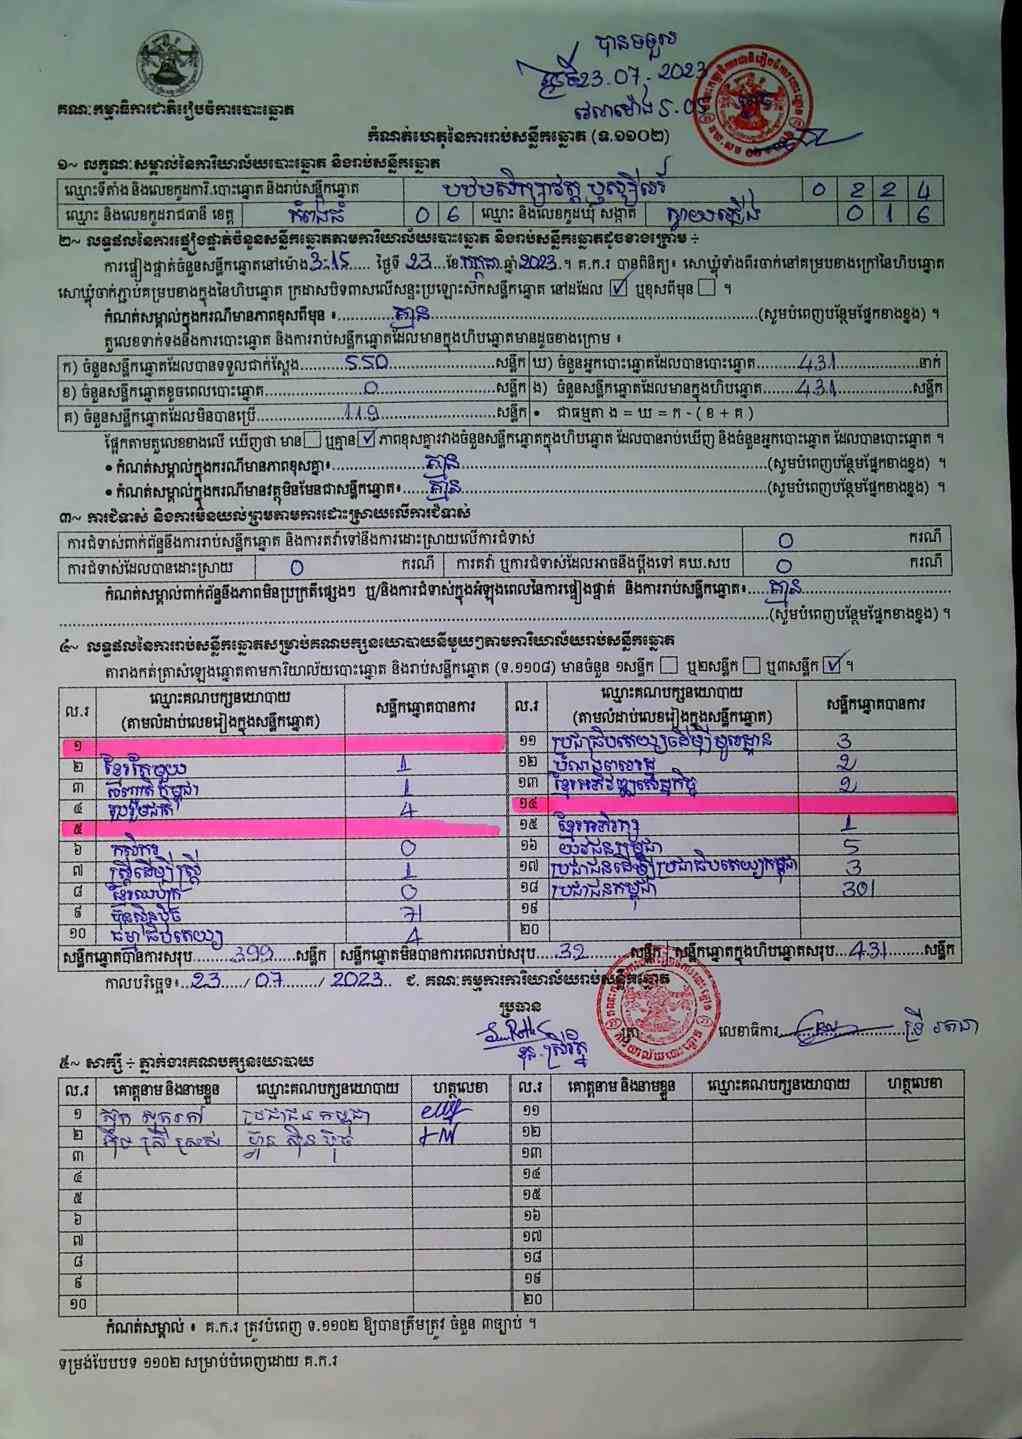 បានទទួល
ថ្ងៃទី 23.07.2023
វេលាម៉ោង 5:05
គណៈកម្មាធិការជាតិរៀបចំការបោះឆ្នោត
កំណត់ហេតុនៃការរាប់សន្លឹកឆ្នោត (ទ.១១០២)
១~ លក្ខណៈសម្គាល់នៃការិយាល័យបោះឆ្នោត និងរាប់សន្លឹកឆ្នោត
ឈ្មោះទីតាំង និងលេខកូដការិ.បោះឆ្នោត និងរាប់សន្លឹកឆ្នោត 0 2 2 4
ឈ្មោះ និងលេខកូដរាជធានី ខេត្ត កំពង់ធំ 0 6 ឈ្មោះ និងលេខកូដឃុំ សង្កាត់ ស្វាយភ្លើង 0 1 6
២~ លទ្ធផលនៃការផ្ទៀងផ្ទាត់ចំនួនសន្លឹកឆ្នោតតាមការិយាល័យបោះឆ្នោត និងរាប់សន្លឹកឆ្នោតដូចខាងក្រោម ៖
ការផ្ទៀងផ្ទាត់ចំនួនសន្លឹកឆ្នោតនៅម៉ោង 3:15 ថ្ងៃទី 23 ខែ កក្កដា ឆ្នាំ 2023 ។ គ.ក.រ បានពិនិត្យ៖ សោឃ្លុំទាំងពីរចាក់នៅគម្របខាងក្រៅនៃហិបឆ្នោត
សោឃ្លុំចាក់ភ្ជាប់គម្របខាងក្នុងនៃហិបឆ្នោត ក្រដាសបិទពាសលើសន្ទះប្រឡោះស៊កសន្លឹកឆ្នោត នៅដដែល ☑ ឬខុសពីមុន ☐ ។
កំណត់សម្គាល់ក្នុងករណីមានភាពខុសពីមុន ៖ គ្មាន (សូមបំពេញបន្ថែមផ្នែកខាងខ្នង) ។
តួលេខទាក់ទងនឹងការបោះឆ្នោត និងការរាប់សន្លឹកឆ្នោតដែលមានក្នុងហិបឆ្នោតមានដូចខាងក្រោម ៖
ក) ចំនួនសន្លឹកឆ្នោតដែលបានទទួលជាក់ស្តែង 550 សន្លឹក ឃ) ចំនួនអ្នកបោះឆ្នោតដែលបានបោះឆ្នោត 431 នាក់
ខ) ចំនួនសន្លឹកឆ្នោតខូចពេលបោះឆ្នោត 0 សន្លឹក ង) ចំនួនសន្លឹកឆ្នោតដែលមានក្នុងហិបឆ្នោត 431 សន្លឹក
គ) ចំនួនសន្លឹកឆ្នោតដែលមិនបានប្រើ 119 សន្លឹក • ជាធម្មតា ង = ឃ = ក - ( ខ + គ )
ផ្អែកតាមតួលេខខាងលើ ឃើញថា មាន ☐ ឬគ្មាន ☑ ភាពខុសគ្នារវាងចំនួនសន្លឹកឆ្នោតក្នុងហិបឆ្នោត ដែលបានរាប់ឃើញ និងចំនួនអ្នកបោះឆ្នោត ដែលបានបោះឆ្នោត ។
• កំណត់សម្គាល់ក្នុងករណីមានភាពខុសគ្នា៖ គ្មាន (សូមបំពេញបន្ថែមផ្នែកខាងខ្នង) ។
• កំណត់សម្គាល់ក្នុងករណីមានវត្ថុមិនមែនជាសន្លឹកឆ្នោត៖ គ្មាន (សូមបំពេញបន្ថែមផ្នែកខាងខ្នង) ។
៣~ ការជំទាស់ និងការមិនយល់ព្រមតាមការដោះស្រាយលើការជំទាស់
ការជំទាស់ពាក់ព័ន្ធនឹងការរាប់សន្លឹកឆ្នោត និងការតវ៉ាទៅនឹងការដោះស្រាយលើការជំទាស់ 0 ករណី
ការជំទាស់ដែលបានដោះស្រាយ 0 ករណី ការតវ៉ា ឬការជំទាស់ដែលអាចនឹងប្តឹងទៅ គឃ.សប 0 ករណី
កំណត់សម្គាល់ពាក់ព័ន្ធនឹងភាពមិនប្រក្រតីផ្សេងៗ ឬ/និងការជំទាស់ក្នុងអំឡុងពេលនៃការផ្ទៀងផ្ទាត់ និងការរាប់សន្លឹកឆ្នោត៖ គ្មាន
(សូមបំពេញបន្ថែមផ្នែកខាងខ្នង) ។
៤~ លទ្ធផលនៃការរាប់សន្លឹកឆ្នោតសម្រាប់គណបក្សនយោបាយនីមួយៗតាមការិយាល័យរាប់សន្លឹកឆ្នោត
តារាងកត់ត្រាសំឡេងឆ្នោតតាមការិយាល័យបោះឆ្នោត និងរាប់សន្លឹកឆ្នោត (ទ.១១០៨) មានចំនួន ១សន្លឹក ☐ ឬ២សន្លឹក ☐ ឬ៣សន្លឹក ☑ ។
ល.រ ឈ្មោះគណបក្សនយោបាយ (តាមលំដាប់លេខរៀងក្នុងសន្លឹកឆ្នោត) សន្លឹកឆ្នោតបានការ ល.រ ឈ្មោះគណបក្សនយោបាយ (តាមលំដាប់លេខរៀងក្នុងសន្លឹកឆ្នោត) សន្លឹកឆ្នោតបានការ
១ ១១ ប្រជាធិបតេយ្យដើម្បីមូលដ្ឋាន 3
២ ខ្មែរតែមួយ 1 ១២ 2
៣ សញ្ជាតិកម្ពុជា 1 ១៣ ខ្មែរអភិវឌ្ឍសេដ្ឋកិច្ច 2
៤ រួបរួមជាតិ 4 ១៤
៥ ១៥ ខ្មែរអភិរក្ស 1
៦ កសិករ 0 ១៦ យុវជនកម្ពុជា 5
៧ ស្ត្រីដើម្បីស្ត្រី 1 ១៧ ប្រជាជនដើម្បីប្រជាធិបតេយ្យកម្ពុជា 3
៨ ខ្មែរឈប់ក្រ 0 ១៨ ប្រជាជនកម្ពុជា 301
៩ ហ៊្វុនស៊ិនប៉ិច 71 ១៩
១០ ធម្មាធិបតេយ្យ 4 ២០
សន្លឹកឆ្នោតបានការសរុប 399 សន្លឹក សន្លឹកឆ្នោតមិនបានការពេលរាប់សរុប 32 សន្លឹក សន្លឹកឆ្នោតក្នុងហិបឆ្នោតសរុប 431 សន្លឹក
កាលបរិច្ឆេទ៖ 23 / 07 / 2023 ជ. គណៈកម្មការការិយាល័យរាប់សន្លឹកឆ្នោត
ប្រធាន
លេខាធិការ
៥~ សាក្សី ៖ ភ្នាក់ងារគណបក្សនយោបាយ
ល.រ គោត្តនាម និងនាមខ្លួន ឈ្មោះគណបក្សនយោបាយ ហត្ថលេខា ល.រ គោត្តនាម និងនាមខ្លួន ឈ្មោះគណបក្សនយោបាយ ហត្ថលេខា
១ ប្រជាជនកម្ពុជា ១១
២ ហ៊្វុនស៊ិនប៉ិច ១២
៣ ១៣
៤ ១៤
៥ ១៥
៦ ១៦
៧ ១៧
៨ ១៨
៩ ១៩
១០ ២០
កំណត់សម្គាល់ ៖ គ.ក.រ ត្រូវបំពេញ ទ.១១០២ ឱ្យបានត្រឹមត្រូវ ចំនួន ៣ច្បាប់ ។
ទម្រង់បែបបទ ១១០២ សម្រាប់បំពេញដោយ គ.ក.រ